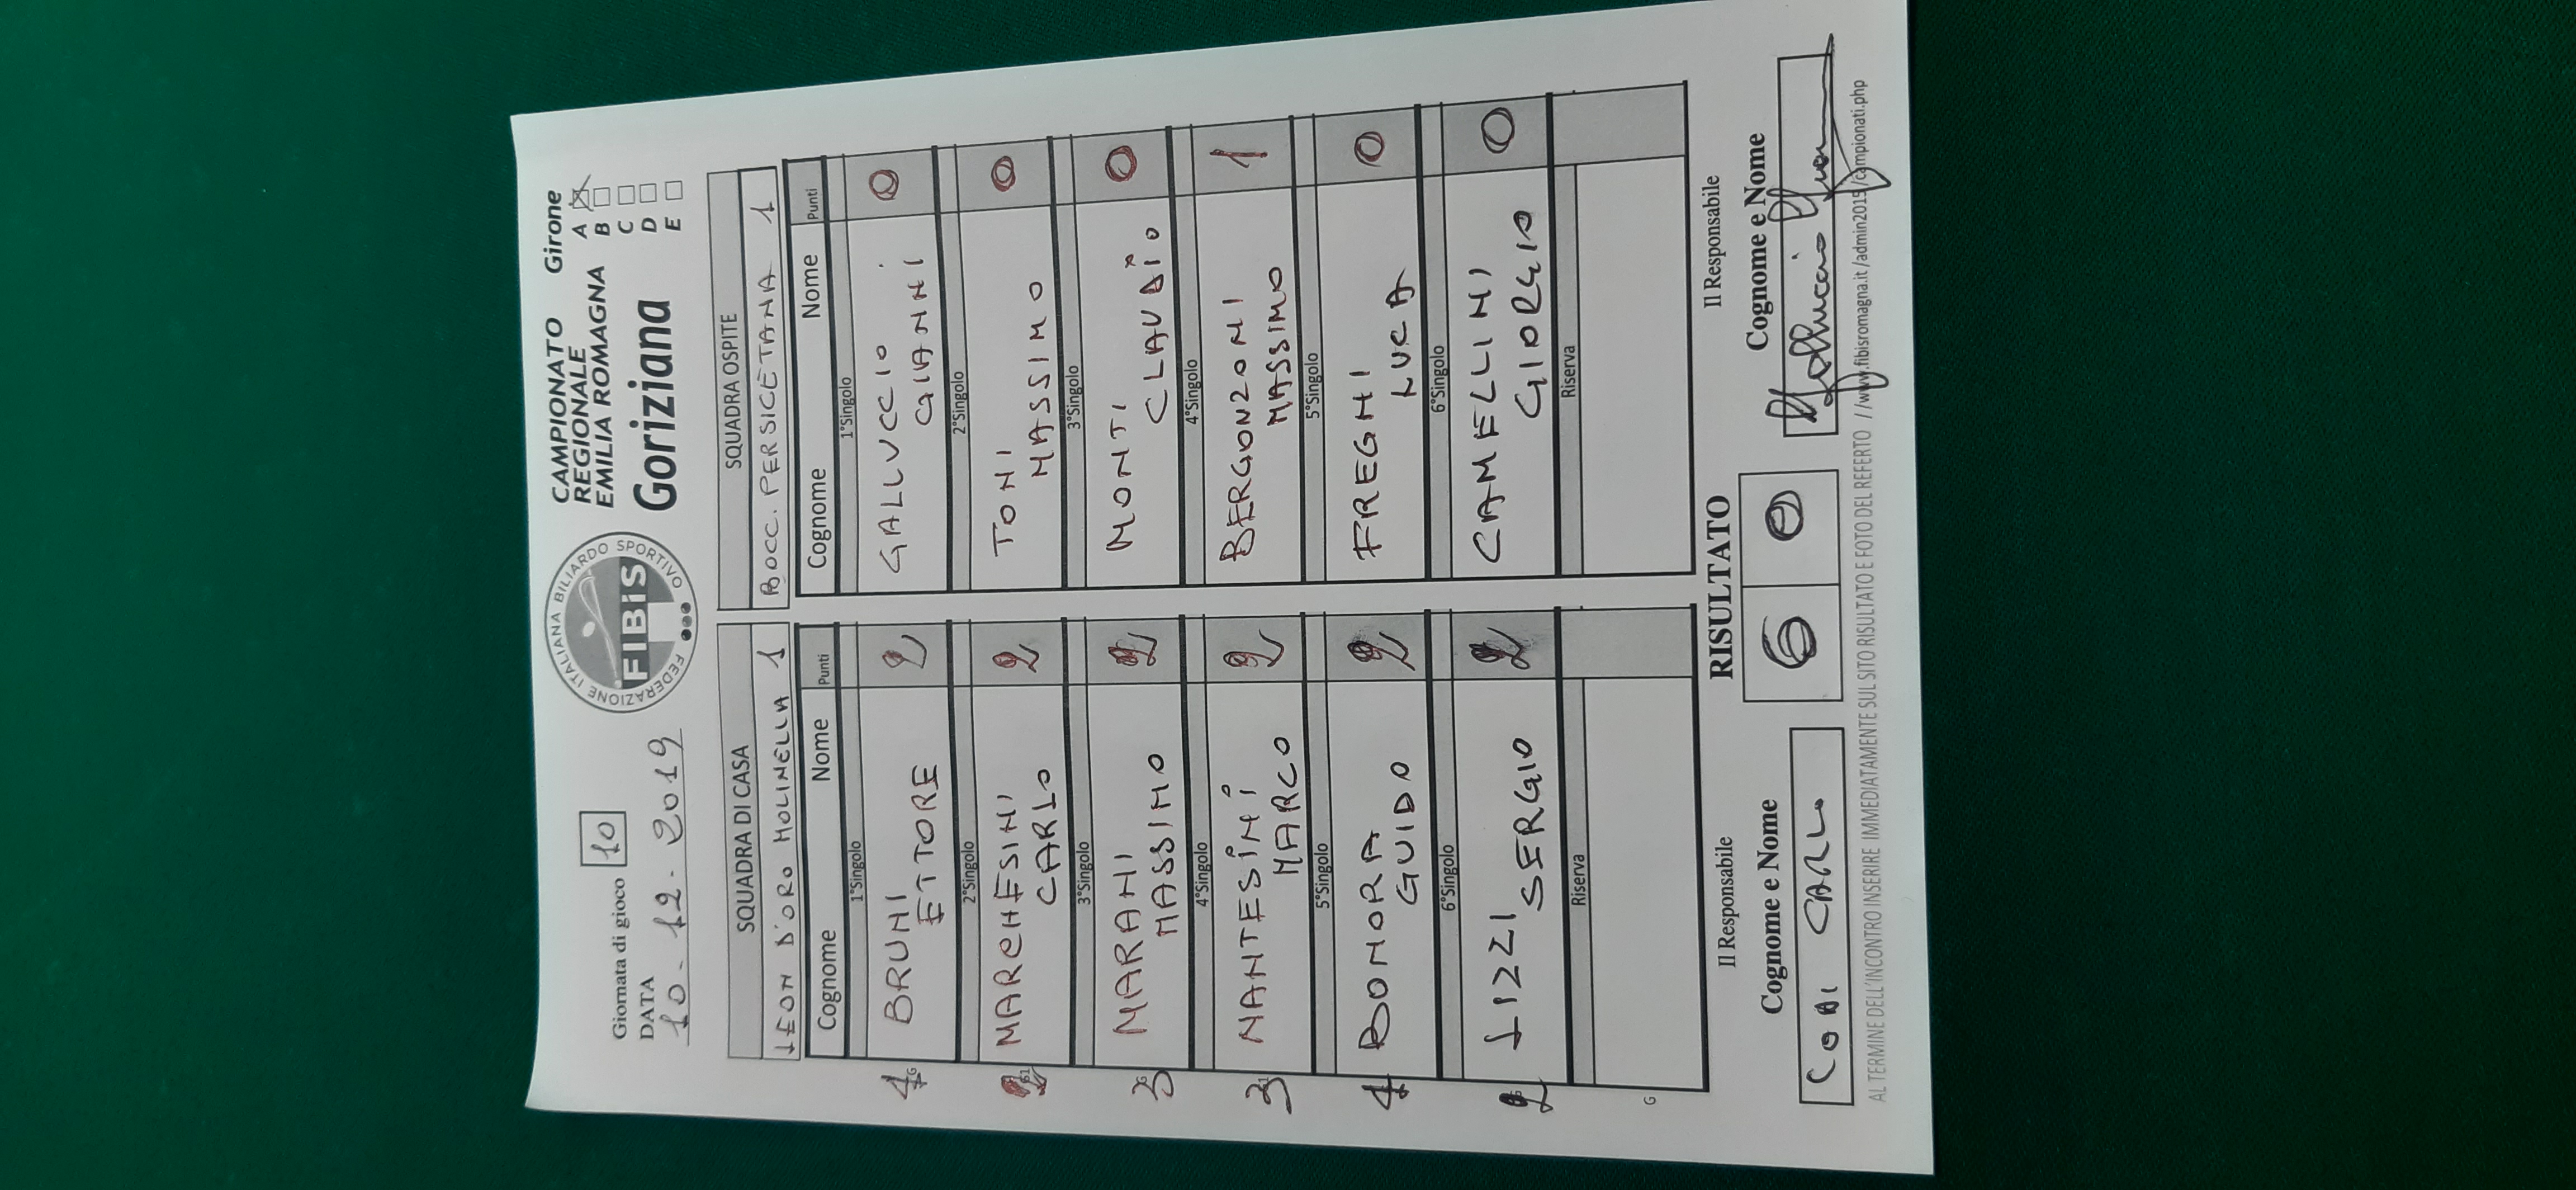 Giornata di gioco 10
DATA
10-12-2019
FEDERAZIONE ITALIANA BILIARDO SPORTIVO
FIBiS
CAMPIONATO
REGIONALE
EMILIA ROMAGNA
Goriziana
Girone
A
B
C
D
E
SQUADRA DI CASA
LEON D'ORO MOLINELLA 1
Cognome Nome Punti
1°Singolo
BRUNI
ETTORE 2
2°Singolo
MARCHESINI
CARLO 2
3°Singolo
MARANI
MASSIMO 2
4°Singolo
MANTESINI
MARCO 2
5°Singolo
BONORA
GUIDO 2
6°Singolo
LIZZI
SERGIO 2
Riserva
G
SQUADRA OSPITE
BOCC. PERSICETANA 1
Cognome Nome Punti
1°Singolo
GALLUCCIO
GIANNI 0
2°Singolo
TONI
MASSIMO 0
3°Singolo
MONTI
CLAUDIO 0
4°Singolo
BERGONZONI
MASSIMO 1
5°Singolo
FREGHI
LUCA 0
6°Singolo
CAMELLINI
GIORGIO 0
Riserva
Il Responsabile
Cognome e Nome
CARLO
RISULTATO
6 0
Il Responsabile
Cognome e Nome
AL TERMINE DELL'INCONTRO INSERIRE IMMEDIATAMENTE SUL SITO RISULTATO E FOTO DEL REFERTO //www.fibisromagna.it/admin2015/campionati.php